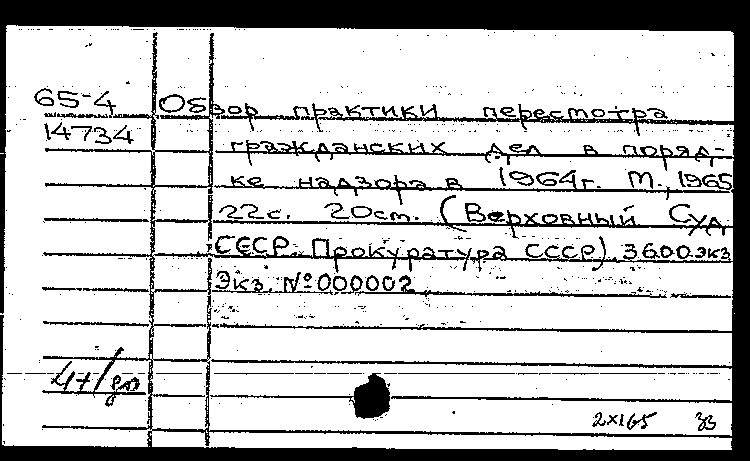 65-4 Обзор практики пересмотра
14734 гражданских дел в поряд-
ке надзора в 1964г. М., 1965
22с. 20см. (Верховный Суд
СССР. Прокуратура СССР). 3600 экз
Экз. №000002
2х165 33